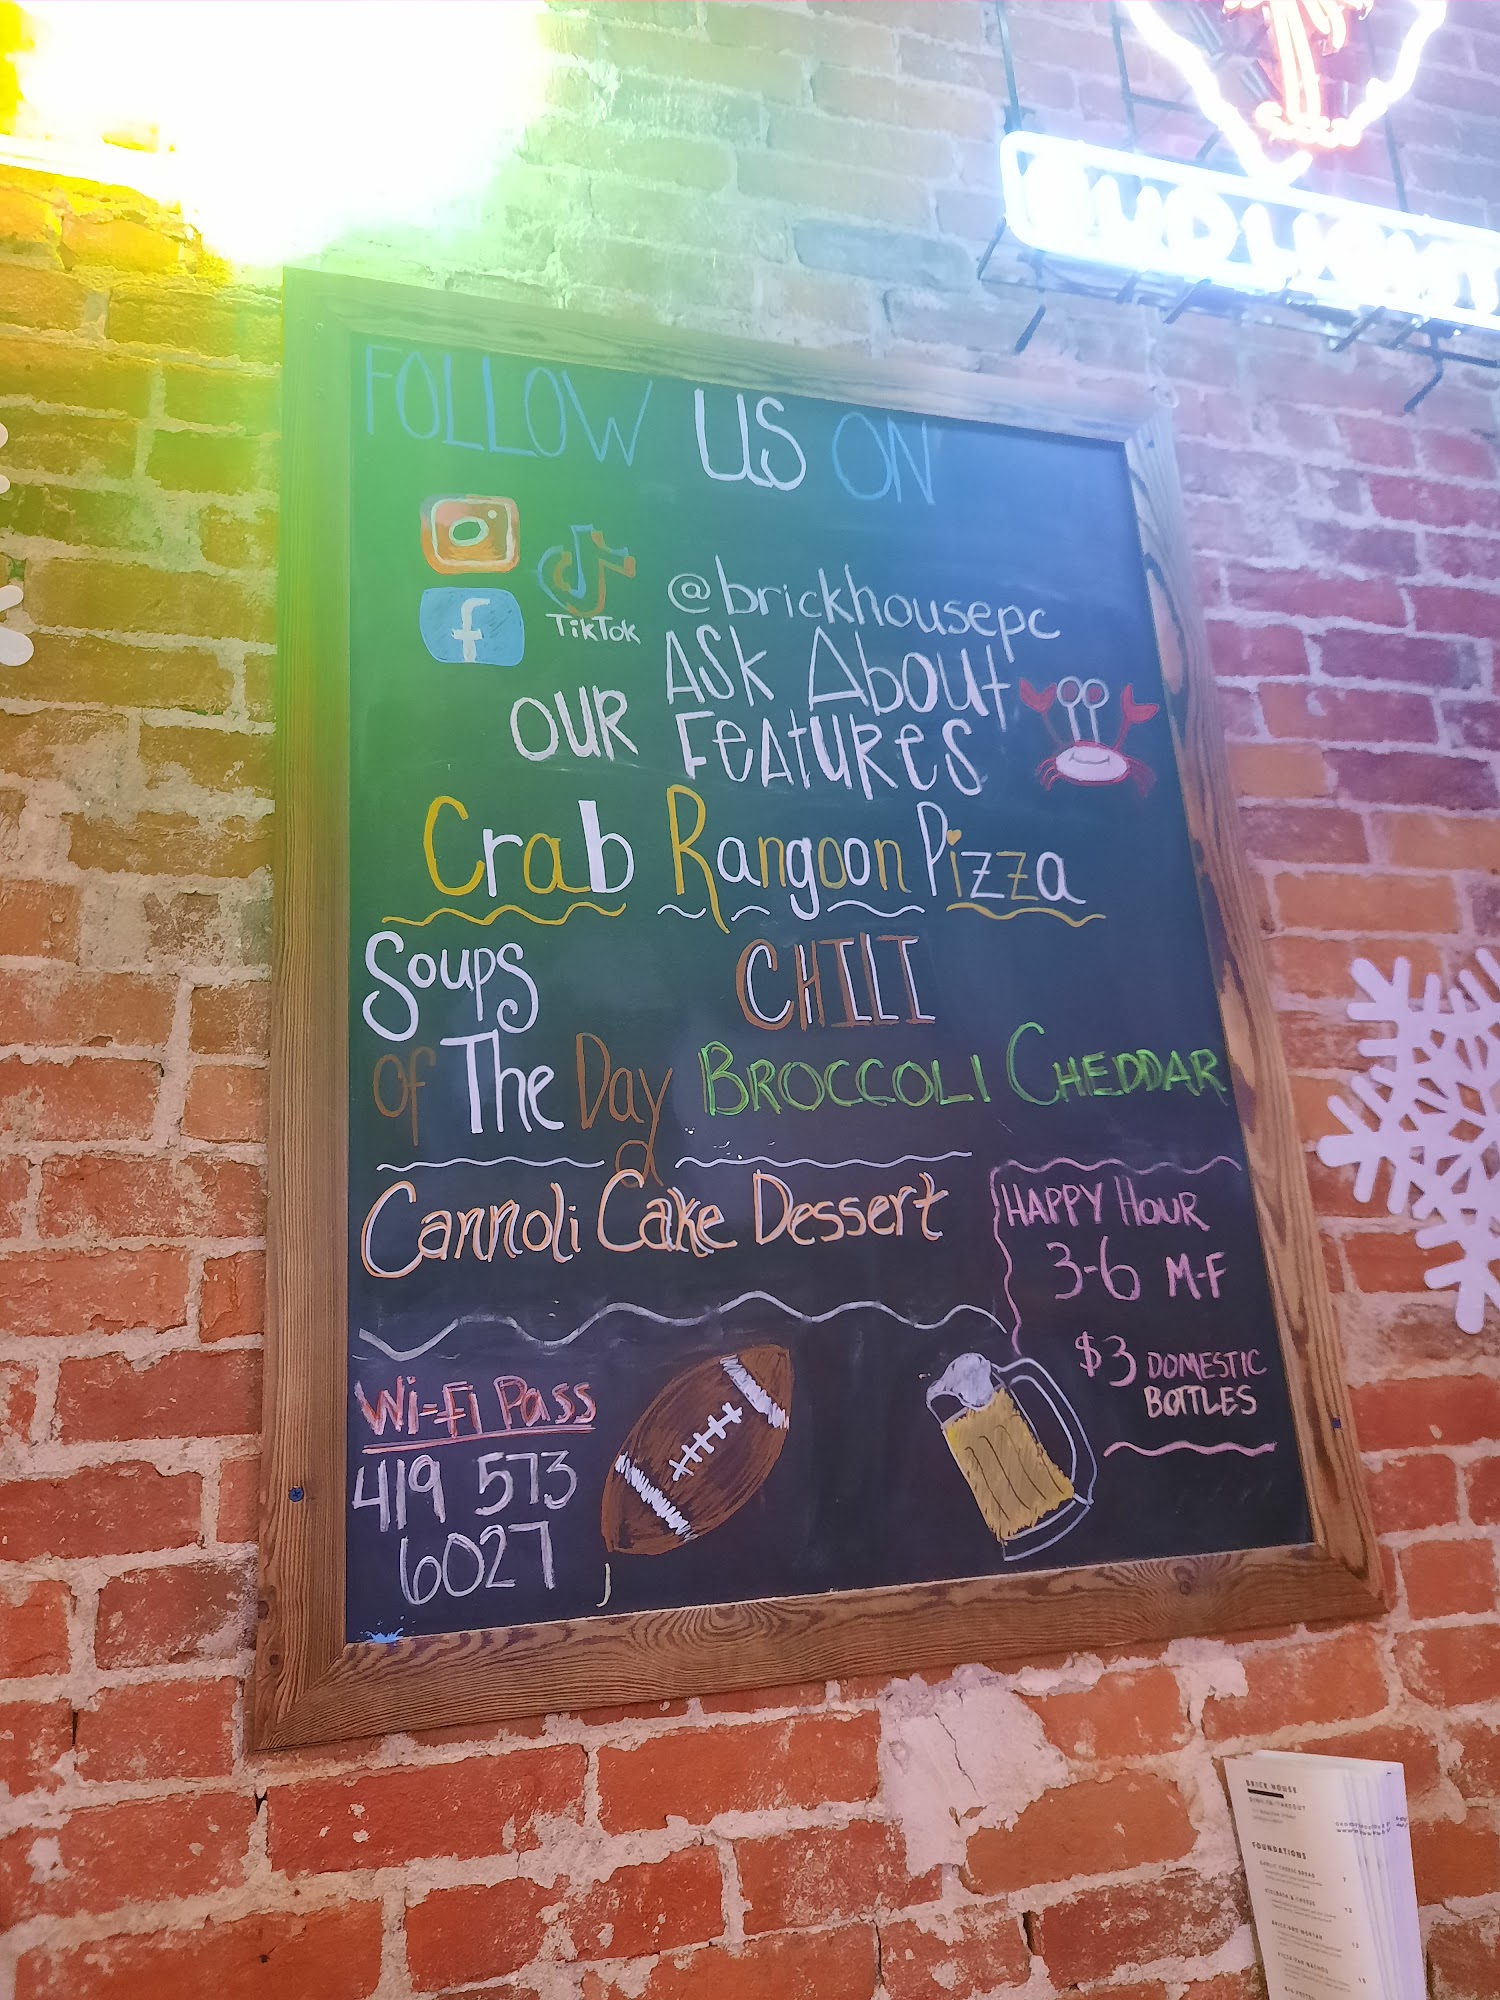 BUD LIGHT
FOLLOW US ON
TikTok
@brickhousepc
ASK About
OUR FeAtURes
Crab Rangoon Pizza
Soups
Of The Day
CHILI
BROCCOLI CHEDDAR
Cannoli Cake Dessert
HAPPY HOUR
3-6 M-F
$3 DOMESTIC
BOTTLES
Wi-Fi Pass
419 573
6027
BRICK HOUSE
FOUNDATIONS